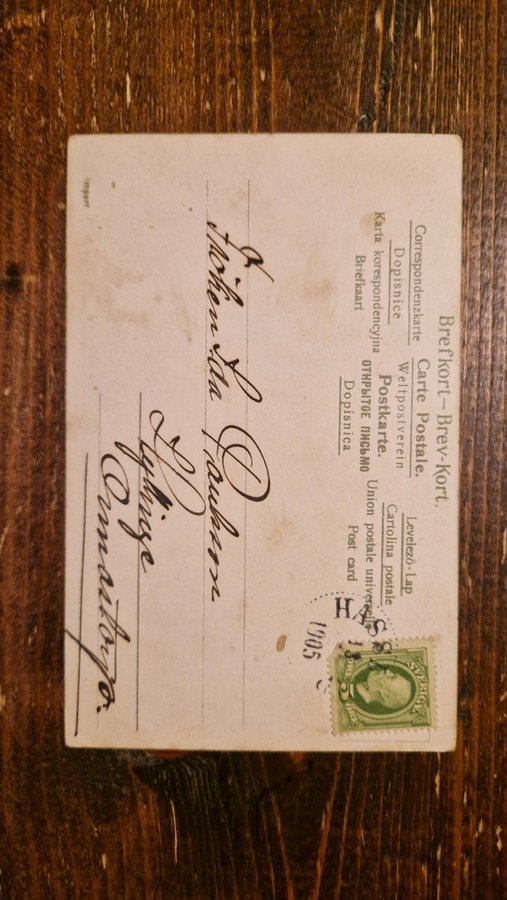 Brefkort—Brev-Kort.
Correspondenzkarte Carte Postale. Levelező-Lap
Dopisnice Weltpostverein Cartolina postale
Karta korespondencyjna Postkarte. Union postale universelle
Briefkaart ОТКРЫТОЕ ПИСЬМО Post card
Dopisnica
SVERIGE
5 5
1905
Fröken Ida Paulsson
Hyllinge
import